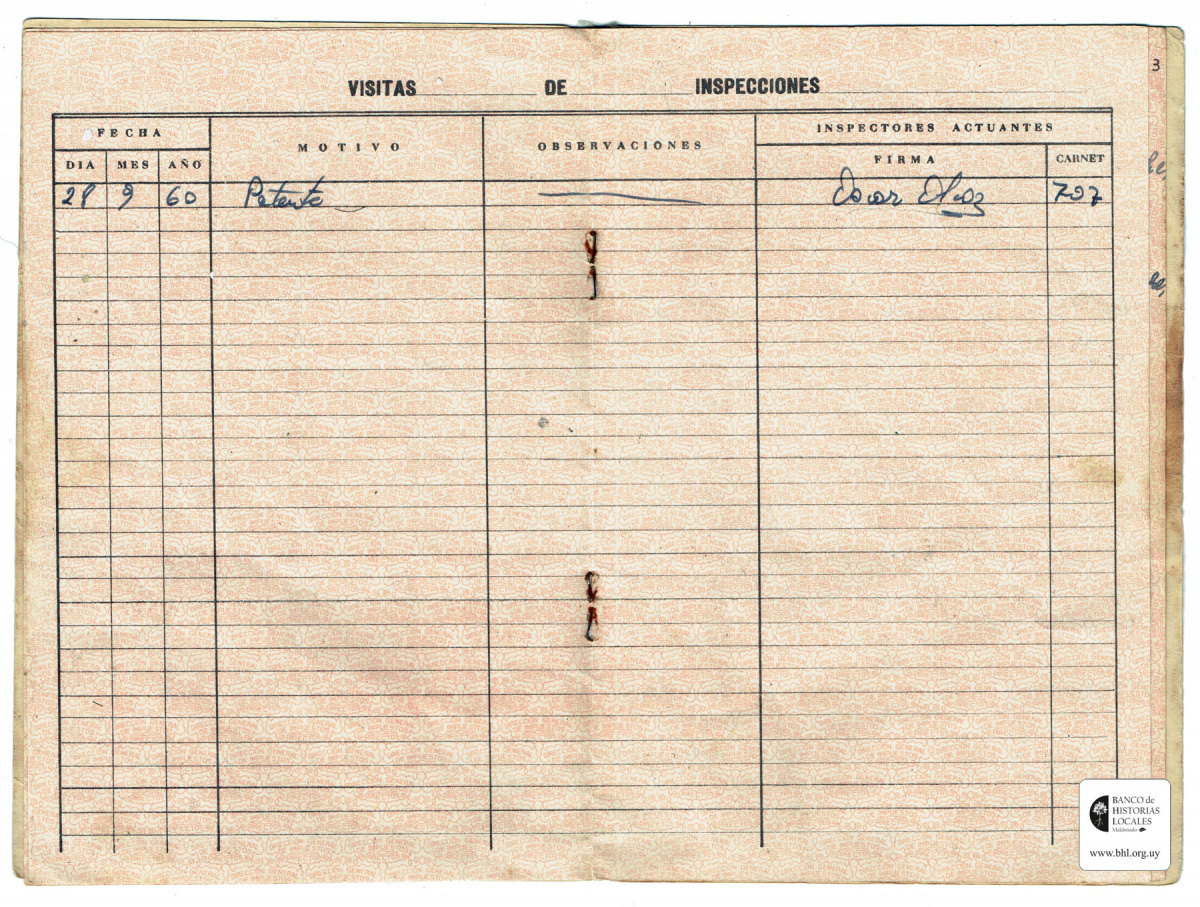 3
VISITAS DE INSPECCIONES
FECHA
MOTIVO
OBSERVACIONES
INSPECTORES ACTUANTES
DIA MES AÑO
FIRMA
CARNET
28 9 60 Patente Oscar 707
BANCO de
HISTORIAS
LOCALES
Maldonado
www.bhl.org.uy